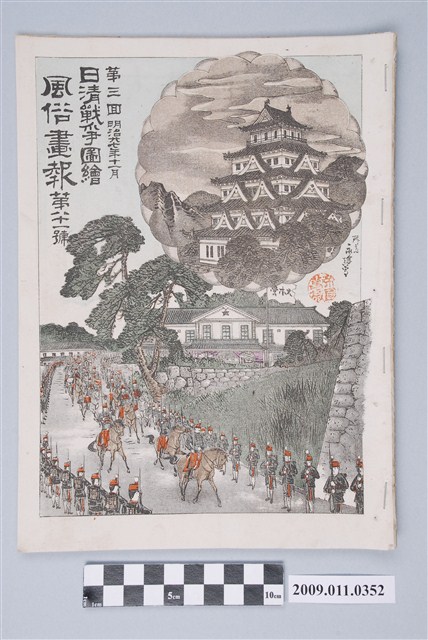 第三回 明治廿七年十一月
日清戦争圖繪
風俗畫報 第八十一號
1cm
5cm
10cm
2009.011.0352